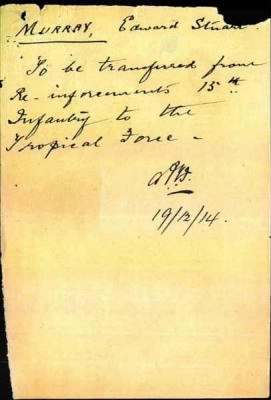 MURRAY, Edward Stuart.
To be transferred from
Re-inforcements 15th
Infantry to the
Tropical Force -
19/12/14.